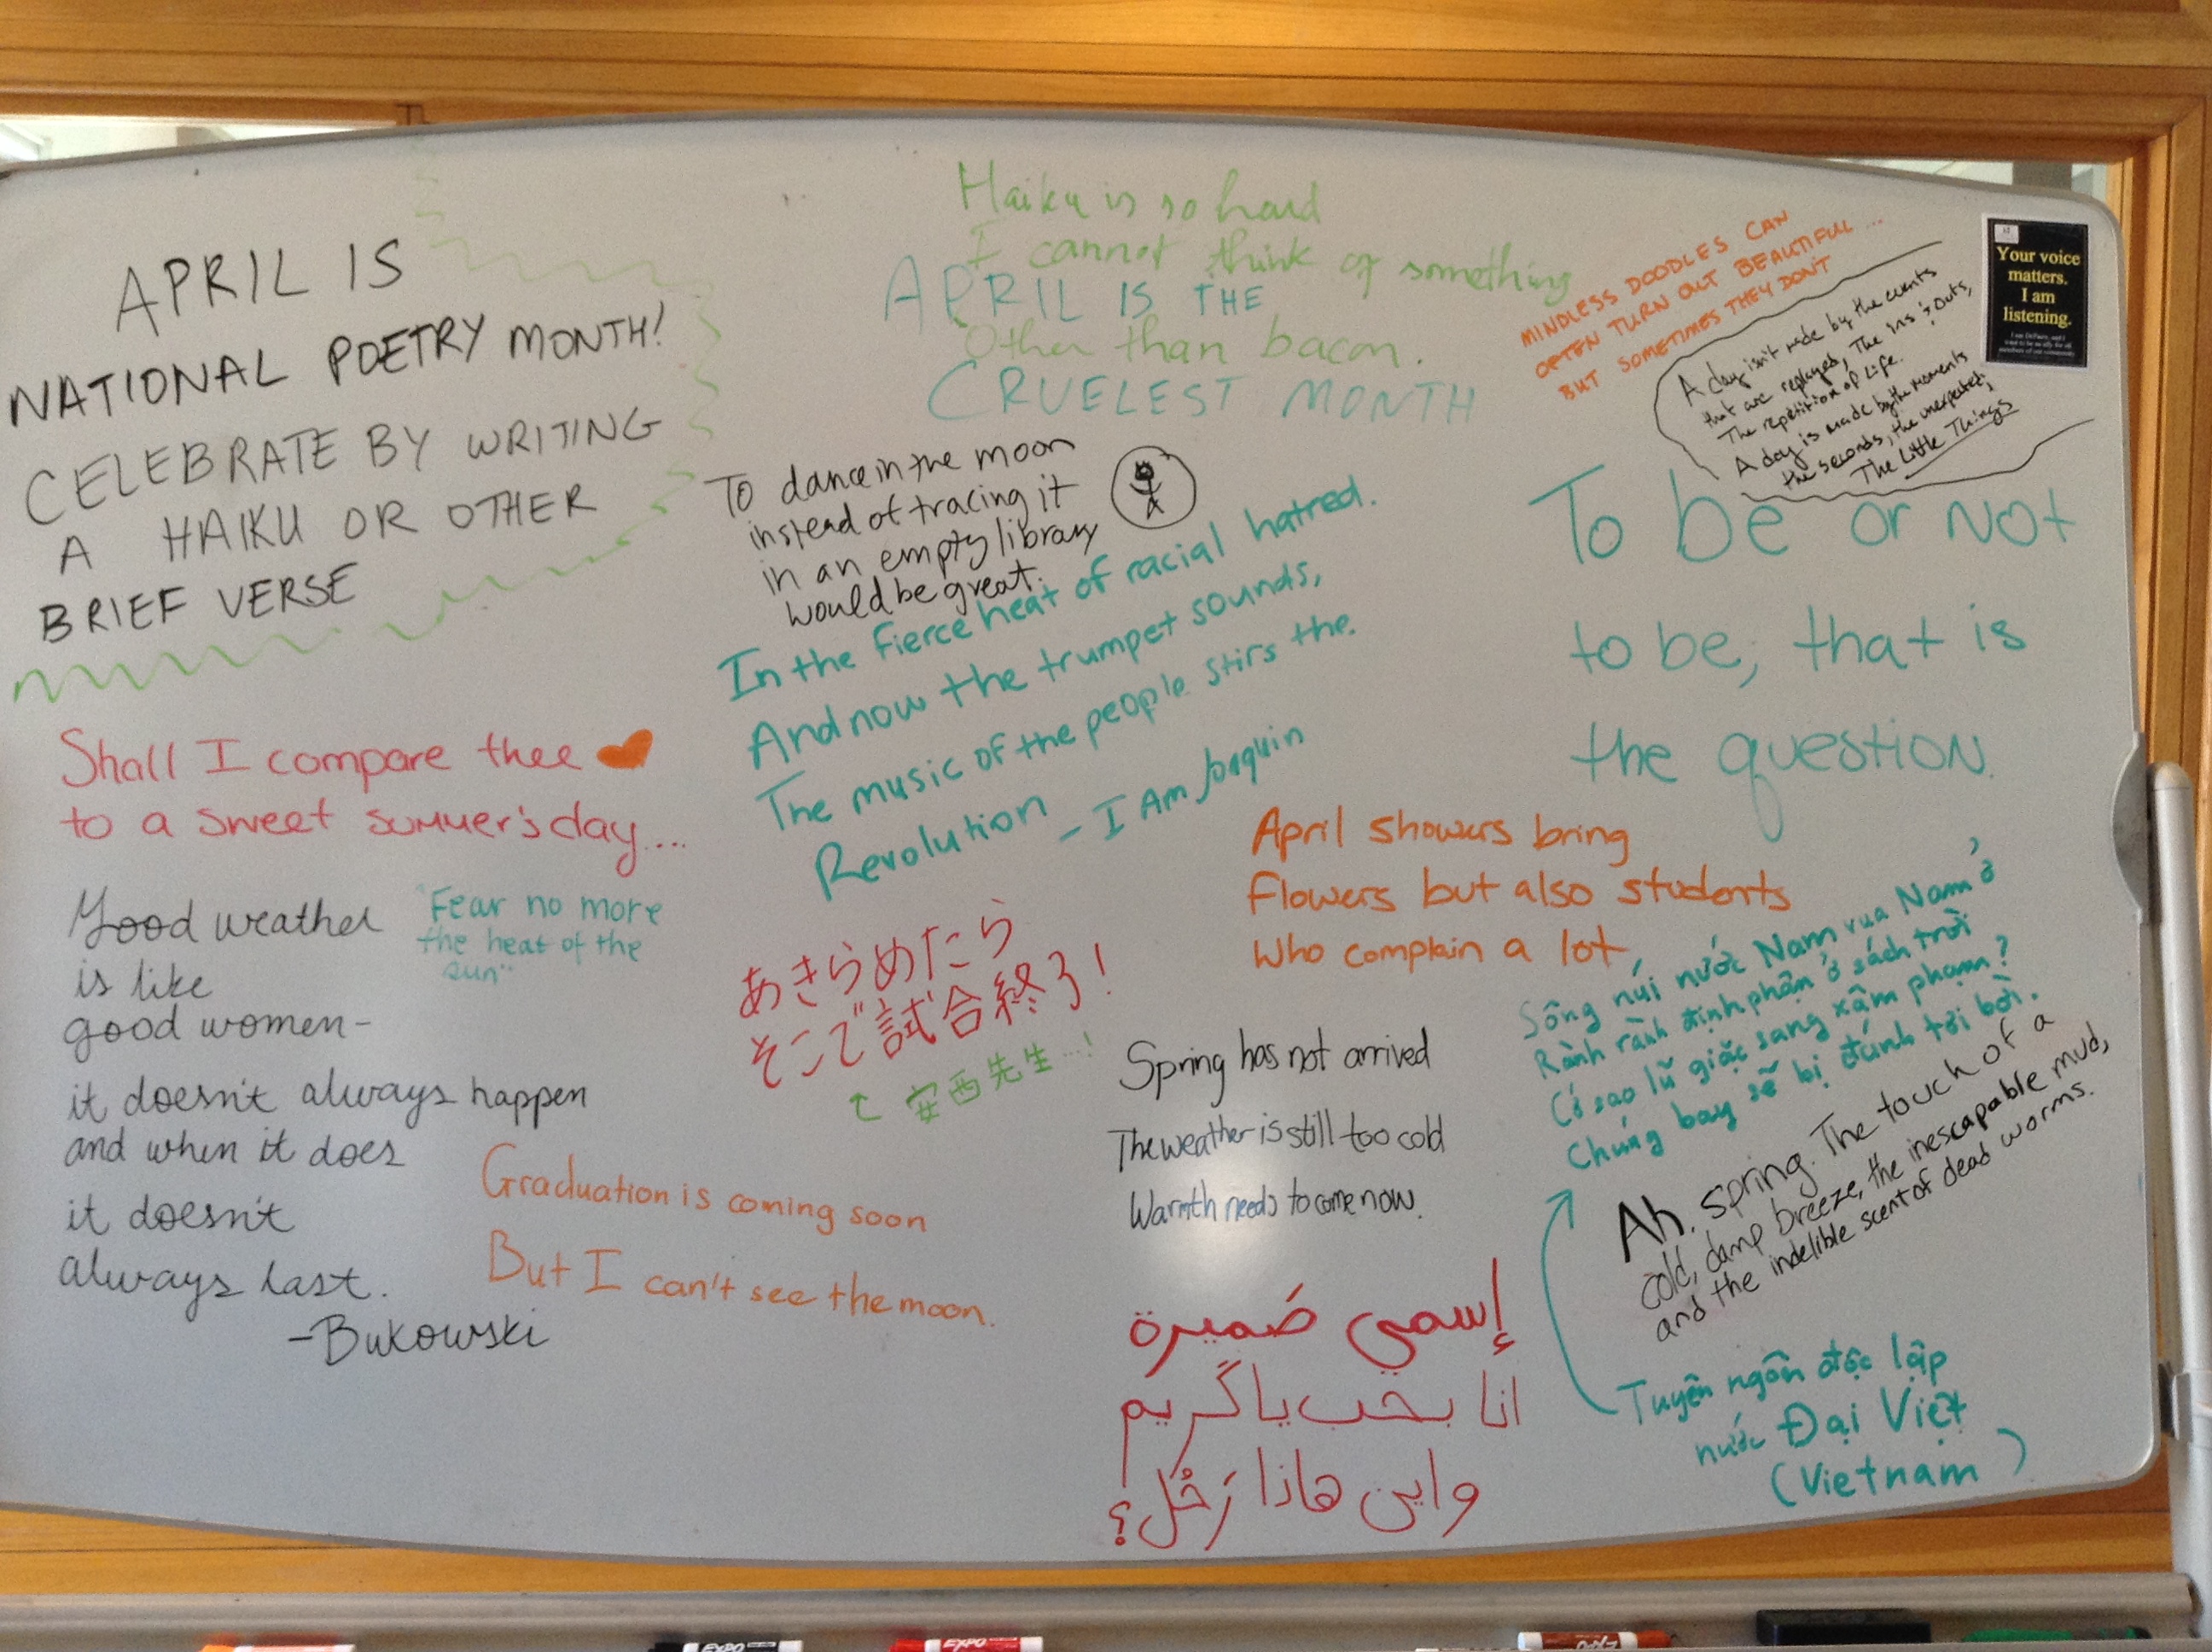 APRIL IS
NATIONAL POETRY MONTH!
CELEBRATE BY WRITING
A HAIKU OR OTHER
BRIEF VERSE
Haiku is so hard
I cannot think of something
Other than bacon.
APRIL IS THE
CRUELEST MONTH
MINDLESS DOODLES CAN
OFTEN TURN OUT BEAUTIFUL...
BUT SOMETIMES THEY DON'T
Your voice
matters.
I am
listening.
A day isn't made by the events
that are replayed, The ins & outs,
The repetition of Life.
A day is made by the moments
the seconds, the unexpected,
The Little Things
To dance in the moon
instead of tracing it
in an empty library
would be great.
In the fierce heat of racial hatred.
And now the trumpet sounds,
The music of the people stirs the
Revolution
- I Am Joaquin
To be or not
to be, that is
the question.
Shall I compare thee
to a sweet summer's day...
Good weather
is like
good women-
it doesn't always happen
and when it does
it doesn't
always last.
-Bukowski
"Fear no more
the heat of the
sun"
あきらめたら
そこで試合終了!
安西先生...!
April showers bring
Flowers but also students
Who complain a lot
Graduation is coming soon
But I can't see the moon.
Spring has not arrived
The weather is still too cold
Warmth needs to come now.
Sông núi nước Nam vua Nam ở
Rành rành định phận ở sách trời
Cớ sao lũ giặc sang xâm phạm?
Chúng bay sẽ bị đánh tơi bời.
Ah. Spring. The touch of a
cold, damp breeze, the inescapable mud,
and the indelible scent of dead worms.
Tuyên ngôn độc lập
nước Đại Việt
(Vietnam)
إسمي ضميرة
انا بحب ياگريم
واين هاذا رَجُل؟
EXPO
EXPO
EXPO